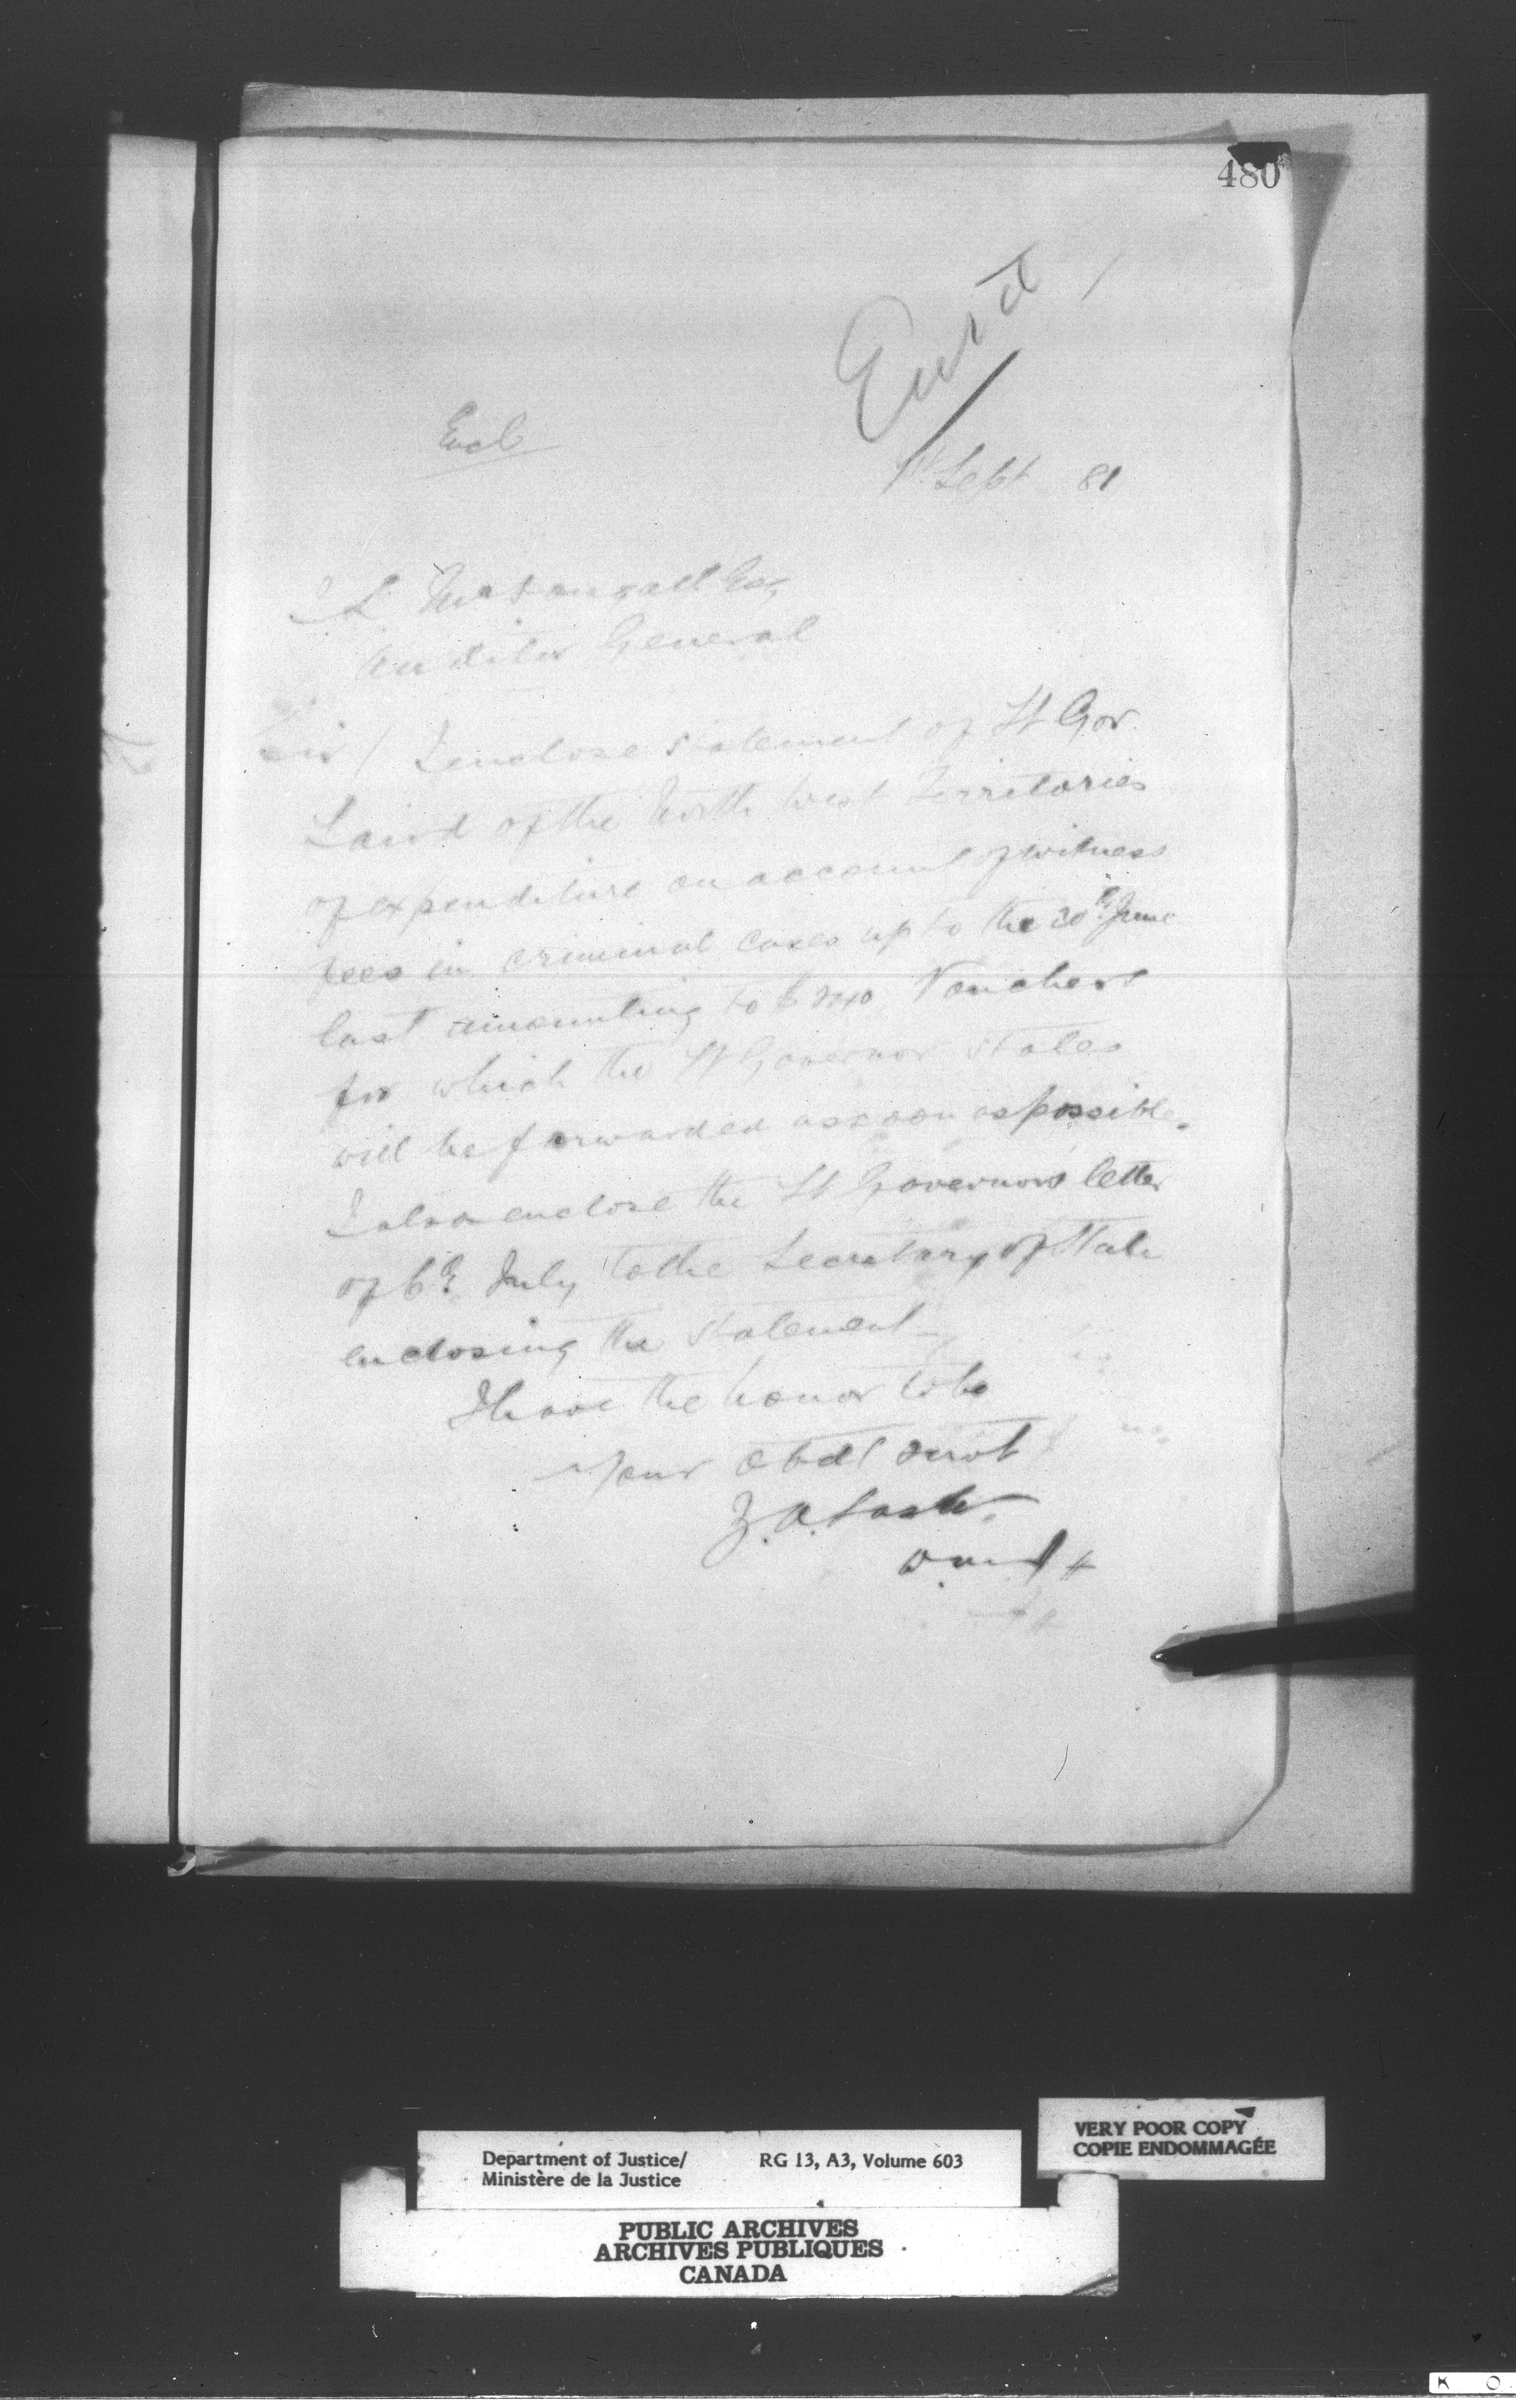 480
Encl
1st Sept 81
J L McDougall Esq
Auditor General
Sir / I enclose statement of Lt Gov.
Laird of the North West Territories
of expenditure on account of witness
fees in criminal cases up to the 30th June
last amounting to Vouchers
for which the Lt Governor states
will be forwarded as soon as possible.
I also enclose the Lt Governors letter
of 6th July to the Secretary of State
enclosing the statement
I have the honor to be
Your Obdt Servt
Z. A. Lash
Department of Justice/ RG 13, A3, Volume 603
Ministère de la Justice
VERY POOR COPY
COPIE ENDOMMAGÉE
PUBLIC ARCHIVES
ARCHIVES PUBLIQUES
CANADA
K O